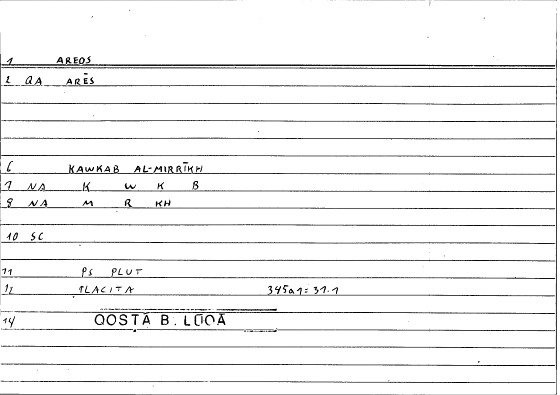 1 AREOS
2 QA ARĒS
6 KAWKAB AL-MIRRĪKH
7 NA K W K B
8 NA M R KH
10 SC
11 PS PLUT
12 PLACITA 345a1=31.1
14 QOSṬĀ B. LŪQĀ